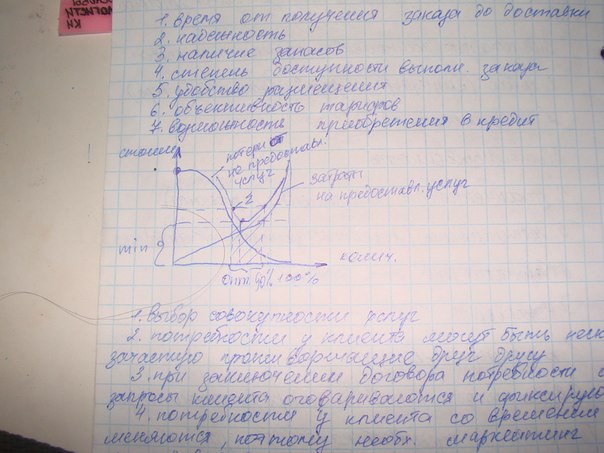 1. время от получения заказа до доставки
2. надежность
3. наличие запасов
4. степень доступности выполн. заказа
5. удобство размещения
6. объективность тарифов
7. возможность приобретения в кредит
потери от
на предоставл.
услуг
2
затраты
на предоставл. услуг
min
колич.
опт. 90% 100%
1. выбор совокупности услуг
2. потребности у клиента могут быть
зачастую противоречащие друг другу
3. при заключении договора потребности
запросы клиента оговариваются и
4. потребности у клиента со временем
меняются, поэтому необх. маркетинг